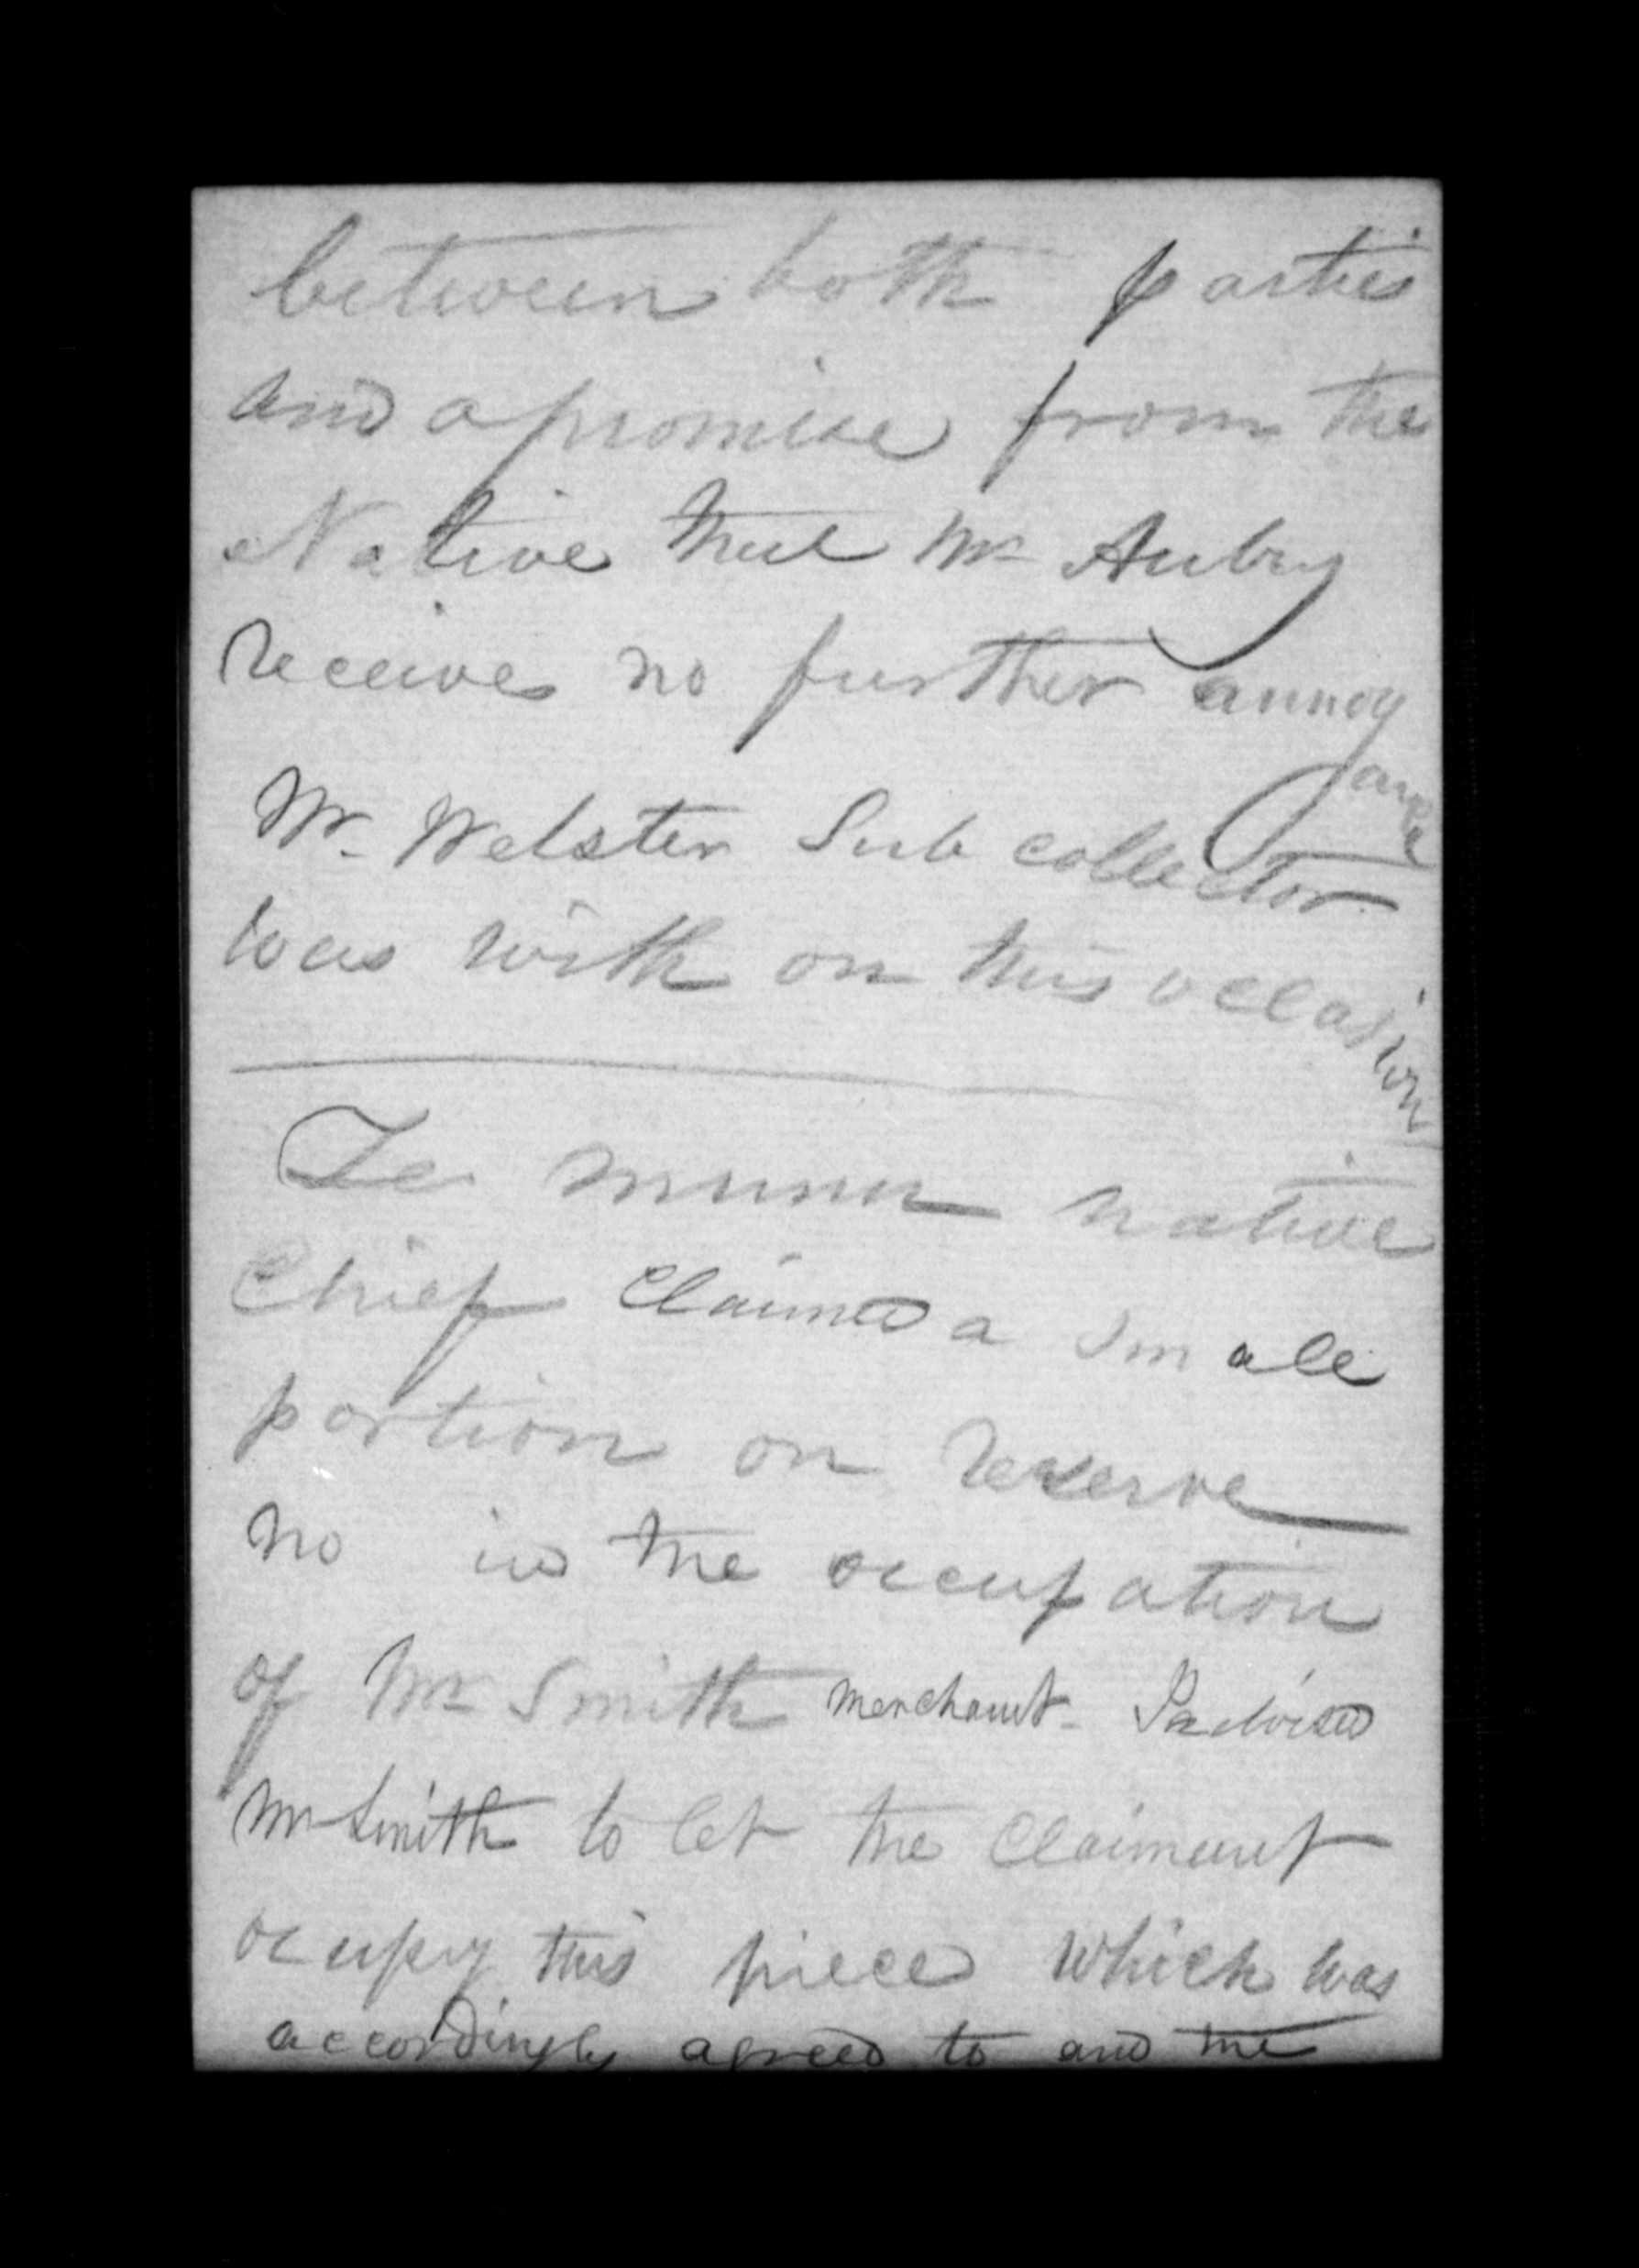 between both parties
and a promise from the
Native that Mr Aubry
receive no further annoy
ance
Mr. Webster Sub collector
was with on this occasion
Te native
Chief Claimed a small
portion on reserve
no in the occupation
of Mr Smith merchant. I advised
Mr Smith to let the Claimant
ocupy this piece which was
accordingly agreed to and the